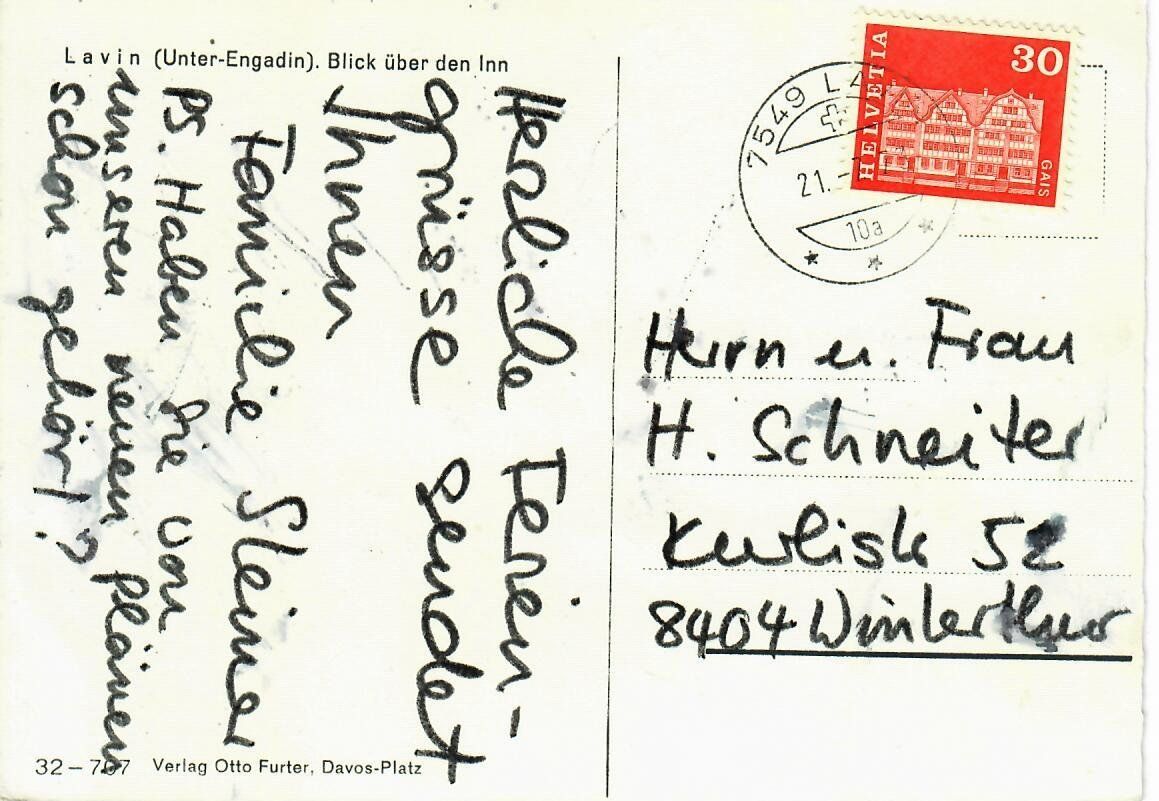 Lavin (Unter-Engadin). Blick über den Inn
Herzliche Ferien-
grüsse sendet
Ihnen
Familie Steiner
PS. Haben Sie von
unseren neuen Plänen
schon gehört?
32–707 Verlag Otto Furter, Davos-Platz
HELVETIA
30
GAIS
7549
21.
10a
Herrn u. Frau
H. Schneiter
52
8404 Winterthur